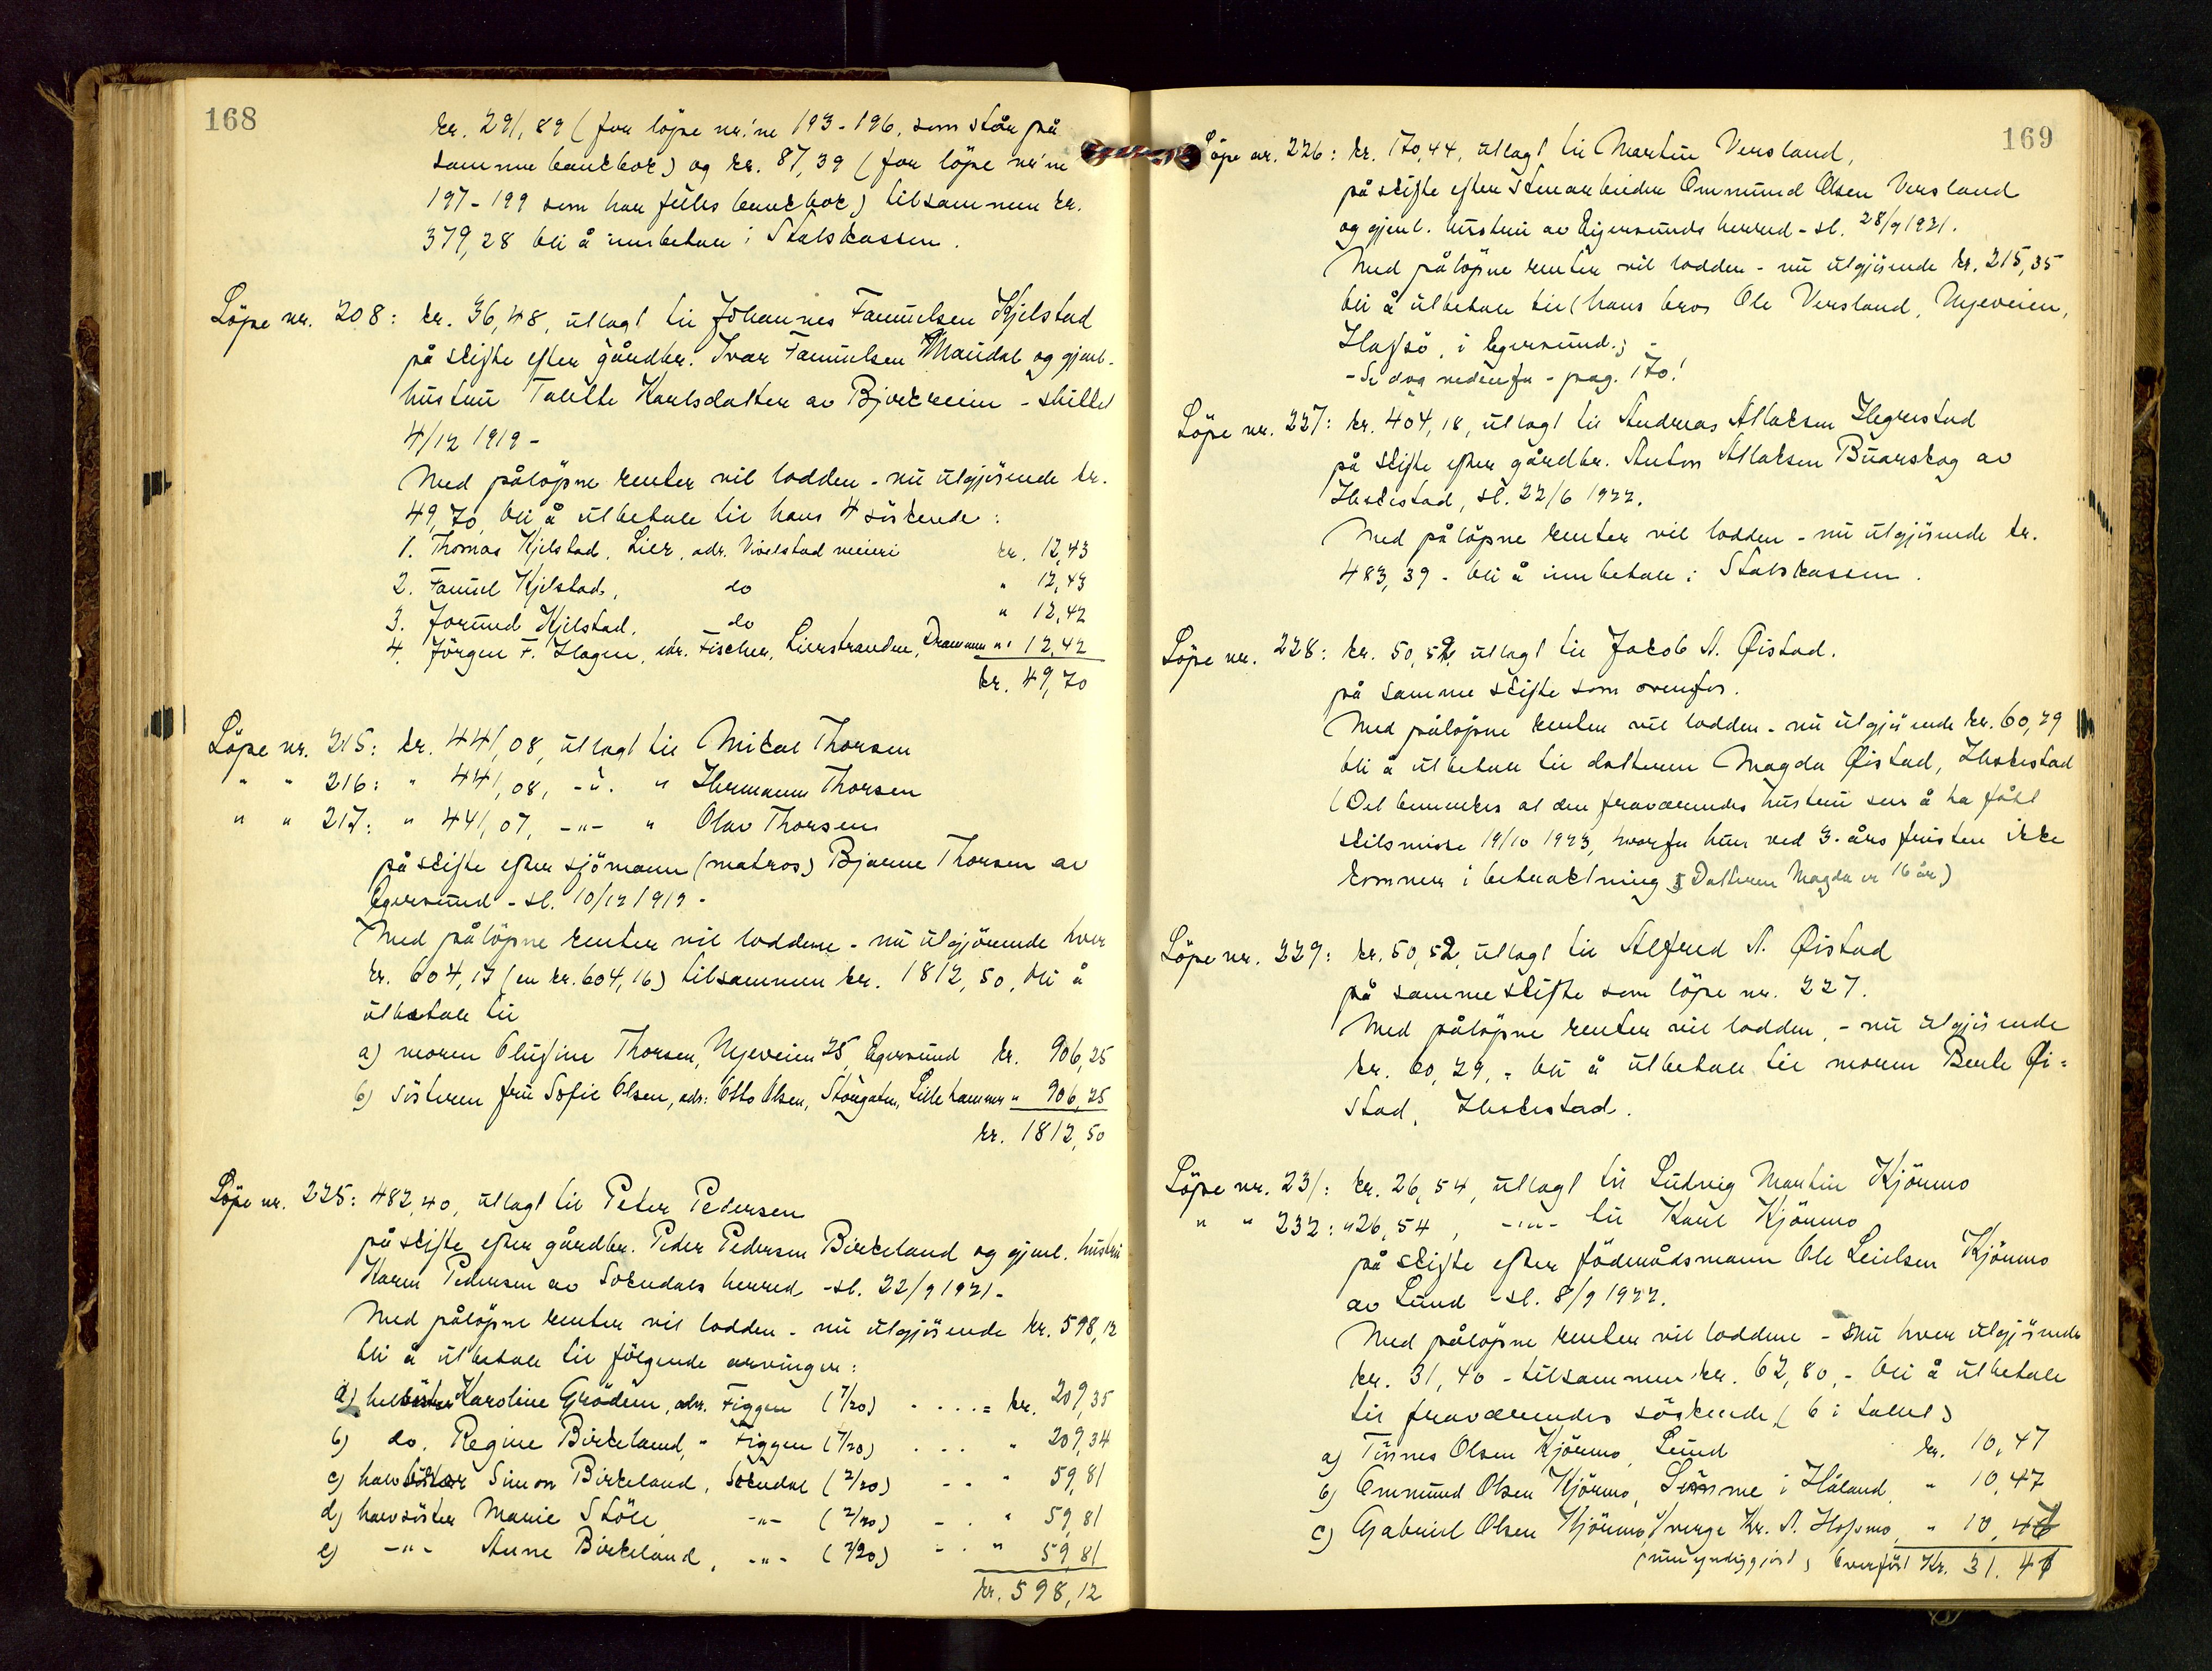 168
kr. 291,89 (for löpe nr.'ne 193-196, som står på
samme bankbok) og kr. 87,39 (for löpe nr'ne
197-199 som har felles bankbok) tilsammen kr.
379,28 bli å innbetale i Statskassen.
Löpe nr. 208: kr. 36,48, utlagt til Johannes Samuelsen Kjelstad
på skifte efter gårdbr. Ivar Samuelsen Maudal og gjenl.
hustru Karlsdatter av Bjerkreim - sluttet
4/12 1919 -
Med påløpne renter vil lodden - nu utgjörende kr.
49,70, bli å utbetale til hans 4 söskende:
1. Thomas Kjelstad, Lier, adr. meieri kr. 12,43
2. Samuel Kjelstad, do " 12,43
3. Jorund Kjelstad, do " 12,42
4. Jörgen F. Hagen, adr. Fischer, Lierstranden, Drammen " 12,42
kr. 49,70
Löpe nr. 215: kr. 441,08, utlagt til Mikal Thorsen
" " 216: " 441,08, -"- " Hermann Thorsen
" " 217: " 441,07, -"- " Olav Thorsen
på skifte efter sjömann (matros) Bjarne Thorsen av
Egersund - sl. 10/12 1919 -
Med påløpne renter vil loddene - nu utgjörende hver
kr. 604,17 (en kr. 604,16) tilsammen kr. 1812,50, bli å
utbetale til
a) moren Olufine Thorsen, Nyeveien 25, Egersund kr. 906,25
b) Sösteren fru Sofie Olsen, adr: Otto Olsen, Storgaten, Lillehammer " 906,25
kr. 1812,50
Löpe nr. 225: 482,40, utlagt til Peter Pedersen
på skifte efter gårdbr. Peder Pedersen Birkeland og gjenl. hustru
Karen Pedersen av Sokndals herred - sl. 22/9 1921 -
Med påløpne renter vil lodden - nu utgjörende kr. 598,12
bli å utbetale til følgende arvinger:
a) helsöster Karoline Grödem, adr. Figgen (7/20) . . . . = kr. 209,35
b) do. Regine Birkeland, " Figgen (7/20) . . . " 209,34
c) halvbror Simon Birkeland, Sokndal (2/20) - - " 59,81
d) halvsöster Marie Stöle -"- (2/20) - . " 59,81
e) -"- Anne Birkeland, -"- (2/20) - . " 59,81
kr. 598,12
169
Löpe nr. 226: kr. 170,44, utlagt til Martin Versland,
på skifte efter Stenarbeider Ommund Olsen Versland
og gjenl. hustru av Eigersunds herred - sl. 28/9 1921.
Med påløpne renter vil lodden - nu utgjörende kr. 215,35
bli å utbetale til (hans bror Ole Versland, Nyeveien,
Hafsö, i Egersund.; -
- Se dog nedenfor - pag. 170!
Löpe nr. 227: kr. 404,18, utlagt til Andreas Atlaksen Hegrestad
på skifte efter gårdbr. Anton Atlaksen Buarskog av
Heskestad, sl. 22/6 1922.
Med påløpne renter vil lodden - nu utgjörende kr.
483,39 - bli å innbetale i Statskassen.
Löpe nr. 228: kr. 50,52, utlagt til Jakob A. Øistad.
på samme skifte som ovenfor.
Med påløpne renter vil lodden - nu utgjörende kr. 60,29
bli å utbetale til datteren Magda Øistad, Heskestad
(Det bemerkes at den fraværendes hustru sier å ha fått
skilsmisse 19/10 1923, hvorfor hun ved 3-års fristen ikke
kommer i betraktning; Datteren Magda er 16 år)
Löpe nr. 229: kr. 50,52, utlagt til Alfred A. Øistad
på samme skifte som löpe nr. 227.
Med påløpne renter vil lodden, - nu utgjörende
kr. 60,29, - bli å utbetale til moren Berte Øi-
stad, Heskestad.
Löpe nr. 231: kr. 26,54, utlagt til Ludvig Martin Kjörmo
" " 232: " 26,54, -"- til Karl Kjörmo
på skifte efter föderådsmann Ole Leielsen Kjörmo
av Lund - sl. 8/9 1922.
Med påløpne renter vil loddene - nu hver utgjörende
kr. 31,40 - tilsammen kr. 62,80, - bli å utbetale
til fraværendes söskende (6 i tallet)
a) Tönnes Olsen Kjörmo, Lund kr. 10,47
b) Ommund Olsen Kjörmo, i Håland, " 10,47
c) Gabriel Olsen Kjörmo, v/ verge Kr. A. Hofsmo, " 10,47
(umyndiggjort) Overfört Kr. 31.41